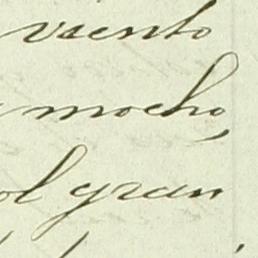 viento
mocho,
ol gran